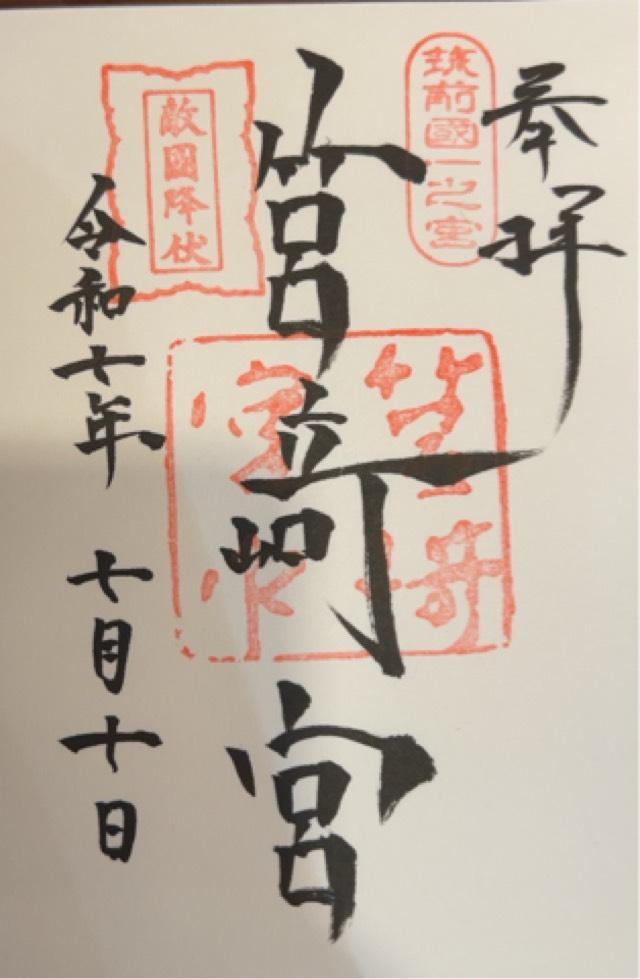 奉拝
筑前國一之宮
筥崎宮
敵國降伏
令和七年 七月十日